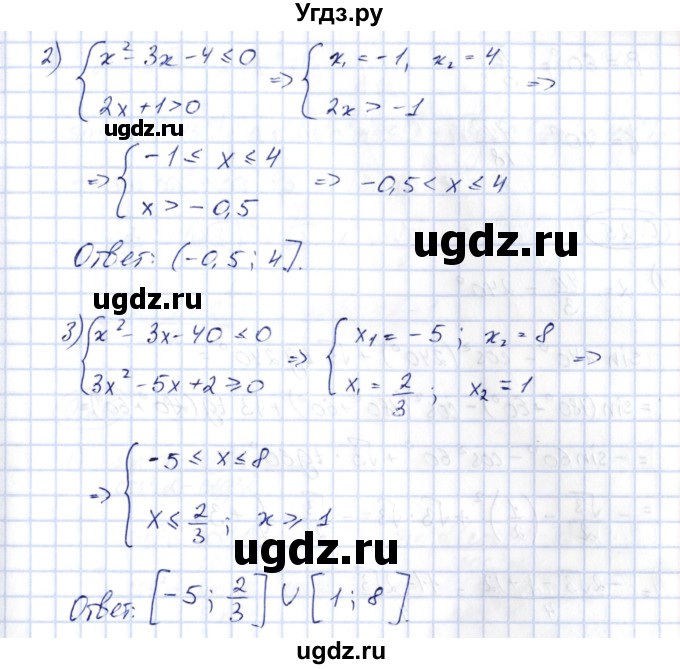 Угдз.ру
2) { x² - 3x - 4 ≤ 0 => { x₁ = -1, x₂ = 4 =>
2x + 1 > 0 2x > -1
ugdz.ru
=> { -1 ≤ x ≤ 4 => -0,5 < x ≤ 4
x > -0,5
ugdz.ru
Ответ: (-0,5; 4].
ugdz.ru
3) { x² - 3x - 40 ≤ 0 => { x₁ = -5; x₂ = 8 =>
3x² - 5x + 2 ≥ 0 x₁ = 2/3; x₂ = 1
ugdz.ru
=> { -5 ≤ x ≤ 8
x ≤ 2/3; x ≥ 1
ugdz.ru
Ответ: [-5; 2/3] ∪ [1; 8].
ugdz.ru